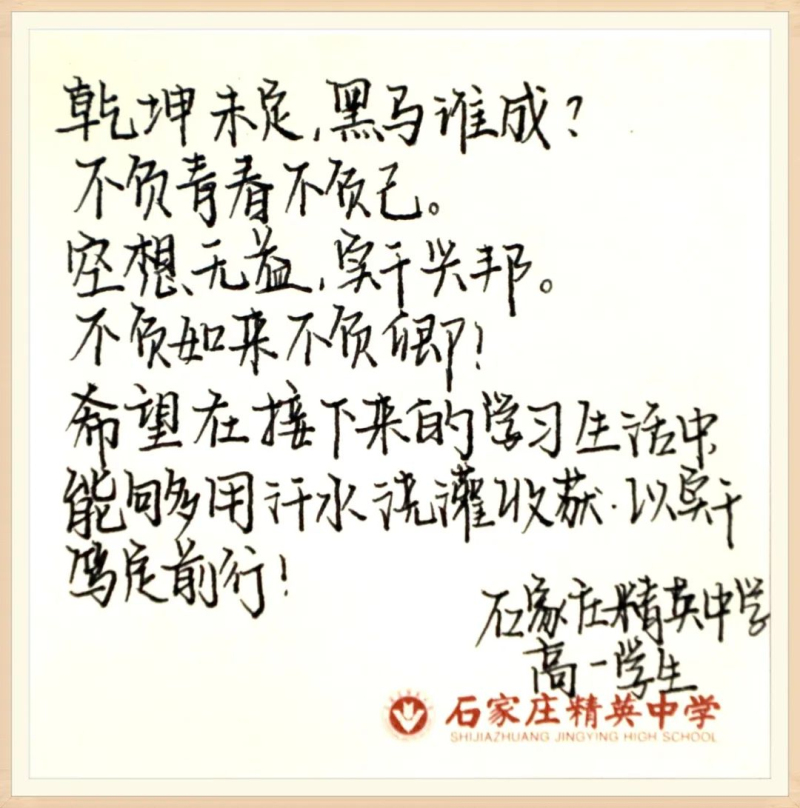 乾坤未定,黑马谁成?
不负青春不负己。
空想无益,实干兴邦。
不负如来不负卿!
希望在接下来的学习生活中,
能够用汗水浇灌收获.以实干
笃定前行!
石家庄精英中学
高一学生
石家庄精英中学
SHIJIAZHUANG JINGYING HIGH SCHOOL